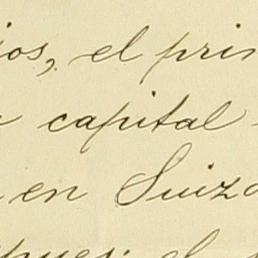 ios, el prin
capital
en Suiza
pues: el